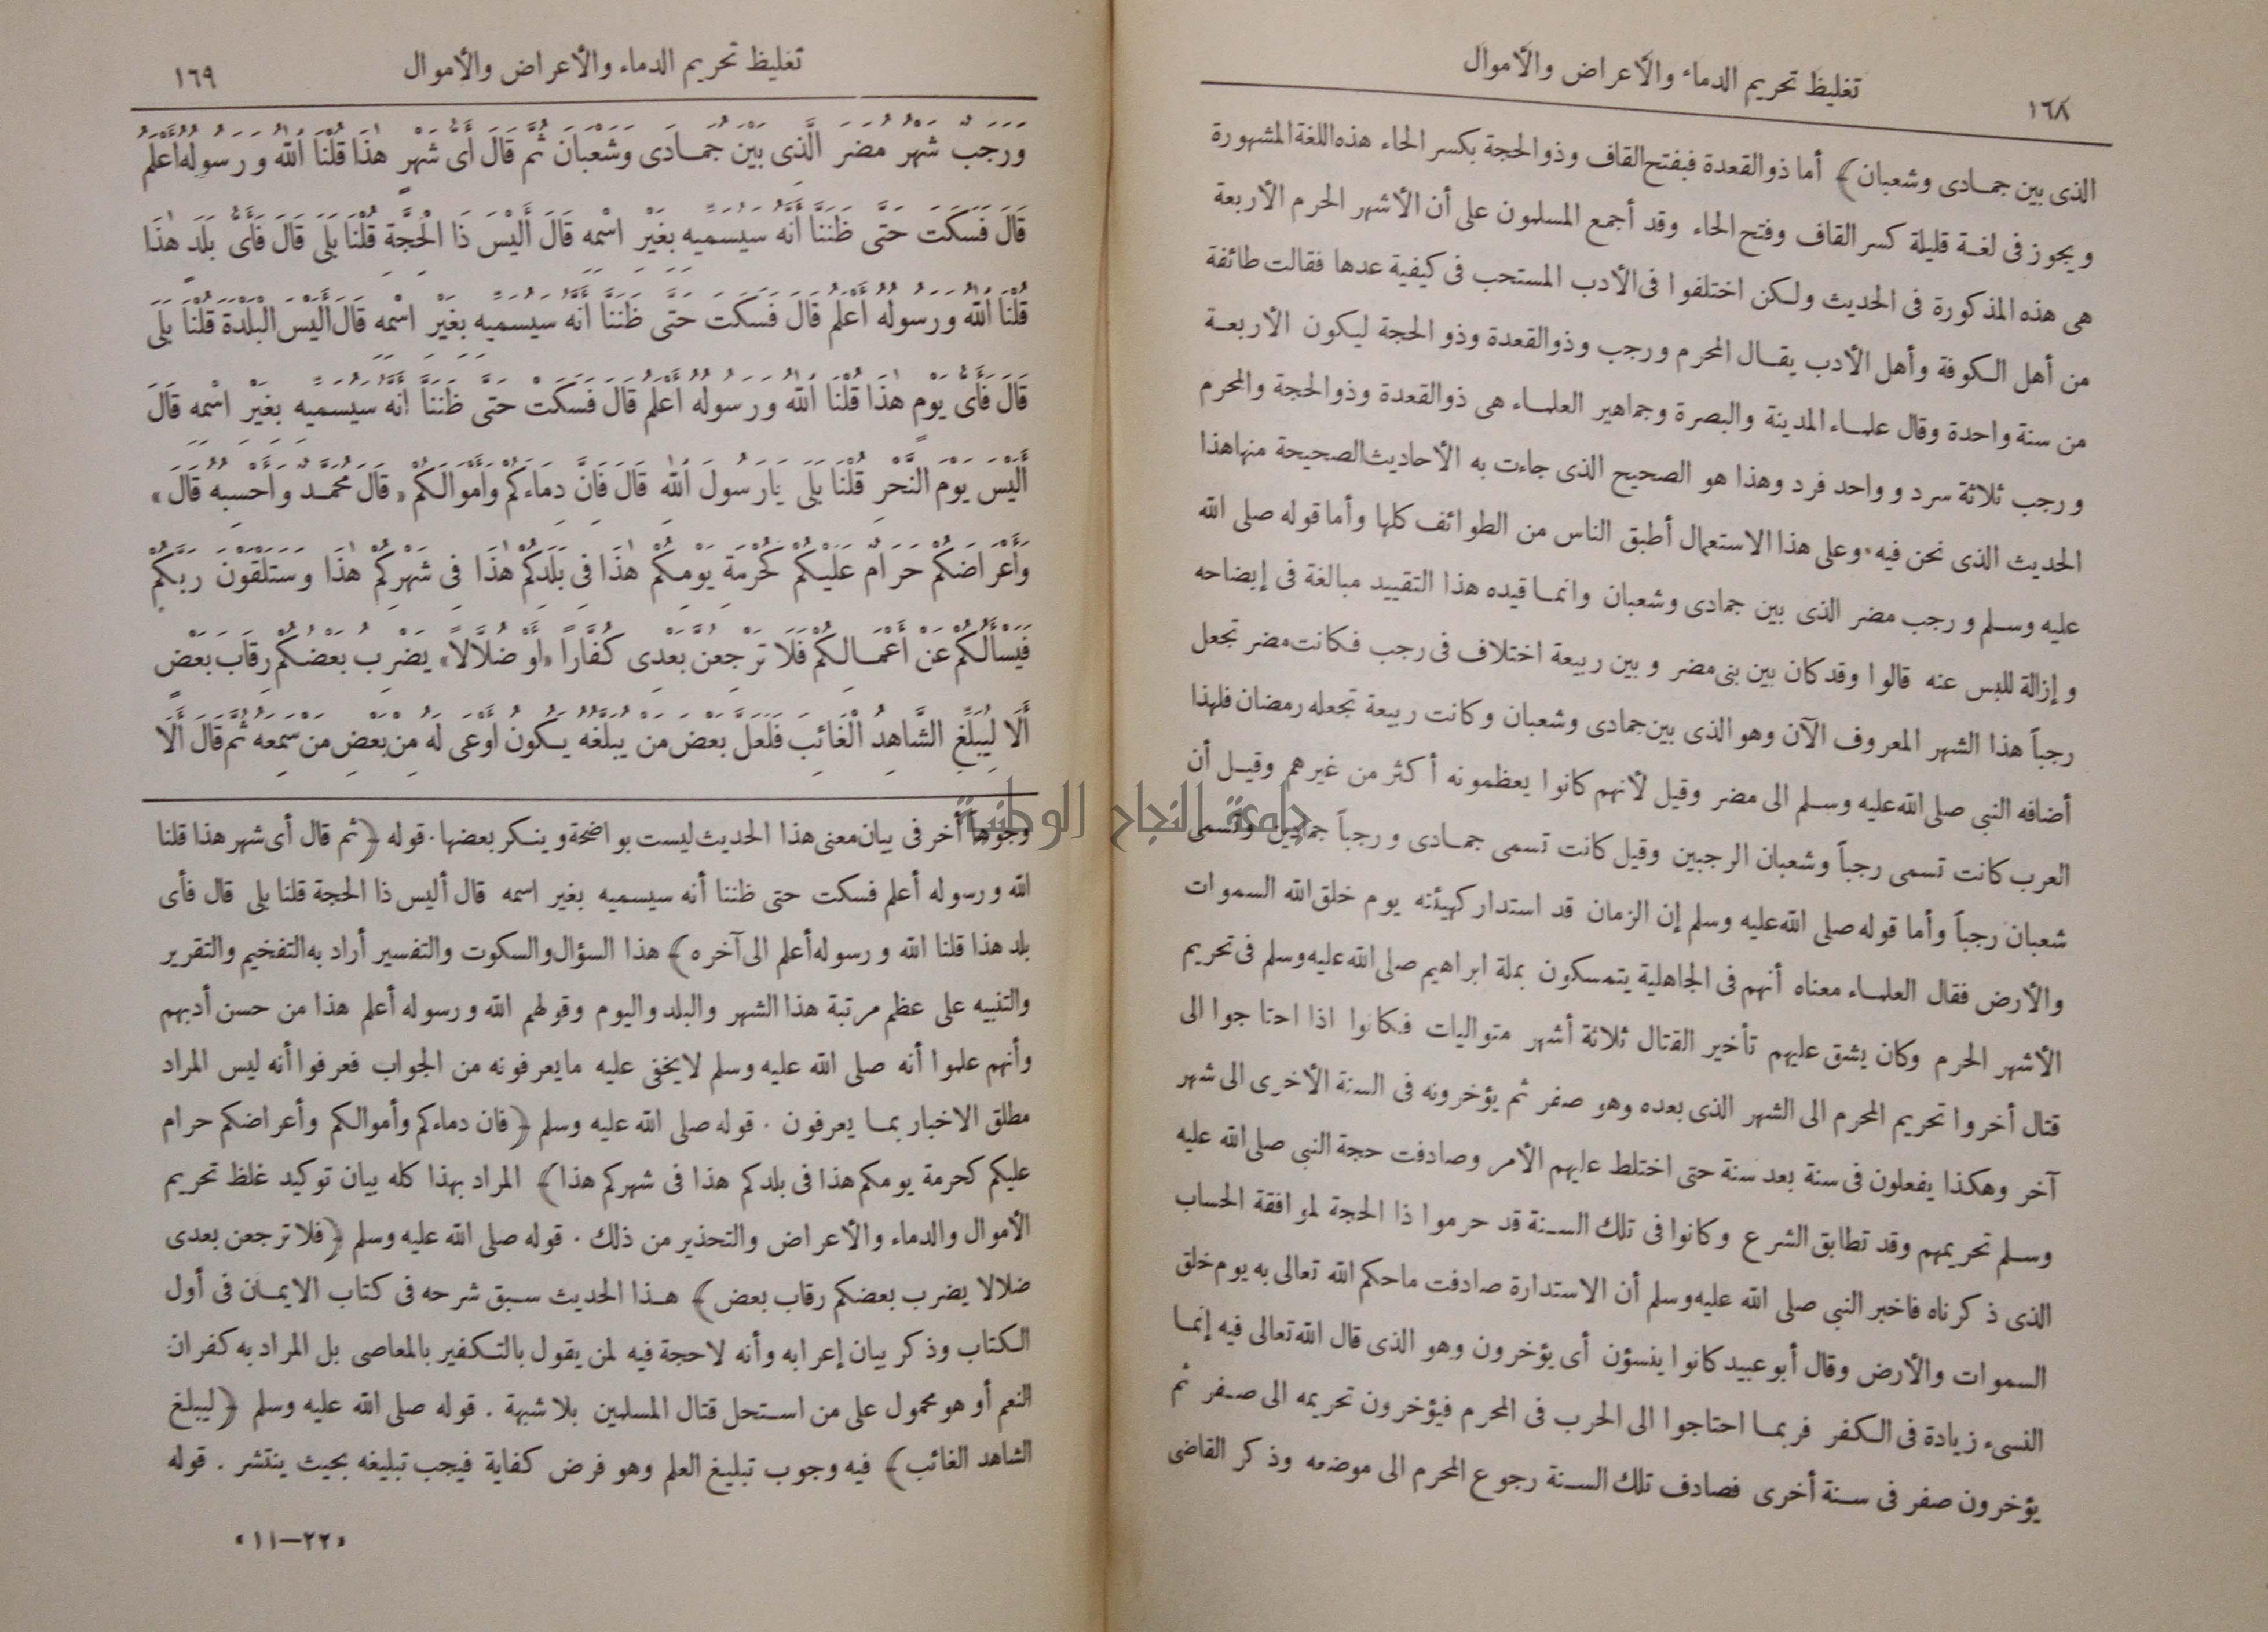 تغليظ تحريم الدماء والأعراض والأموال
١٦٨
الذى بين جمادى وشعبان﴾ أما ذو القعدة فبفتح القاف وذو الحجة بكسر الحاء هذه اللغة المشهورة
ويجوز فى لغة قليلة كسر القاف وفتح الحاء وقد أجمع المسلمون على أن الأشهر الحرم الأربعة
هى هذه المذكورة فى الحديث ولكن اختلفوا فى الأدب المستحب فى كيفية عدها فقالت طائفة
من أهل الكوفة وأهل الأدب يقال المحرم ورجب وذو القعدة وذو الحجة ليكون الأربعة
من سنة واحدة وقال علماء المدينة والبصرة وجماهير العلماء هى ذو القعدة وذو الحجة والمحرم
ورجب ثلاثة سرد وواحد فرد وهذا هو الصحيح الذى جاءت به الأحاديث الصحيحة منها هذا
الحديث الذى نحن فيه. وعلى هذا الاستعمال أطبق الناس من الطوائف كلها وأما قوله صلى الله
عليه وسلم ورجب مضر الذى بين جمادى وشعبان وانما قيده هذا التقييد مبالغة فى إيضاحه
وإزالة للبس عنه قالوا وقد كان بين بنى مضر وبين ربيعة اختلاف فى رجب فكانت مضر تجعل
رجباً هذا الشهر المعروف الآن وهو الذى بين جمادى وشعبان وكانت ربيعة تجعله رمضان فلهذا
أضافه النبى صلى الله عليه وسلم الى مضر وقيل لأنهم كانوا يعظمونه أكثر من غيرهم وقيل أن
العرب كانت تسمى رجباً وشعبان الرجبين وقيل كانت تسمى جمادى ورجباً جمادين وتسمى
شعبان رجباً وأما قوله صلى الله عليه وسلم إن الزمان قد استدار كهيئته يوم خلق الله السموات
والأرض فقال العلماء معناه أنهم فى الجاهلية يتمسكون بملة ابراهيم صلى الله عليه وسلم فى تحريم
الأشهر الحرم وكان يشق عليهم تأخير القتال ثلاثة أشهر متواليات فكانوا اذا احتاجوا الى
قتال أخروا تحريم المحرم الى الشهر الذى بعده وهو صفر ثم يؤخرونه فى السنة الأخرى الى شهر
آخر وهكذا يفعلون فى سنة بعد سنة حتى اختلط عليهم الأمر وصادفت حجة النبى صلى الله عليه
وسلم تحريمهم وقد تطابق الشرع وكانوا فى تلك السنة قد حرموا ذا الحجة لموافقة الحساب
الذى ذكرناه فاخبر النبى صلى الله عليه وسلم أن الاستدارة صادفت ماحكم الله تعالى به يوم خلق
السموات والأرض وقال أبو عبيد كانوا ينسؤن أى يؤخرون وهو الذى قال الله تعالى فيه إنما
النسىء زيادة فى الكفر فربما احتاجوا الى الحرب فى المحرم فيؤخرون تحريمه الى صفر ثم
يؤخرون صفر فى سنة أخرى فصادف تلك السنة رجوع المحرم الى موضعه وذكر القاضى
تغليظ تحريم الدماء والأعراض والأموال
١٦٩
وَرَجَبٌ شَهْرُ مُضَرَ الَّذِى بَيْنَ جُمَادَى وَشَعْبَانَ ثُمَّ قَالَ أَىُّ شَهْرٍ هٰذَا قُلْنَا اللهُ وَرَسُولُهُ أَعْلَمُ
قَالَ فَسَكَتَ حَتَّى ظَنَنَّا أَنَّهُ سَيُسَمِّيهِ بِغَيْرِ اسْمِهِ قَالَ أَلَيْسَ ذَا الْحِجَّةِ قُلْنَا بَلَى قَالَ فَأَىُّ بَلَدٍ هٰذَا
قُلْنَا اللهُ وَرَسُولُهُ أَعْلَمُ قَالَ فَسَكَتَ حَتَّى ظَنَنَّا أَنَّهُ سَيُسَمِّيهِ بِغَيْرِ اسْمِهِ قَالَ أَلَيْسَ الْبَلْدَةَ قُلْنَا بَلَى
قَالَ فَأَىُّ يَوْمٍ هٰذَا قُلْنَا اللهُ وَرَسُولُهُ أَعْلَمُ قَالَ فَسَكَتَ حَتَّى ظَنَنَّا أَنَّهُ سَيُسَمِّيهِ بِغَيْرِ اسْمِهِ قَالَ
أَلَيْسَ يَوْمَ النَّحْرِ قُلْنَا بَلَى يَارَسُولَ اللهِ قَالَ فَانَّ دِمَاءَكُمْ وَأَمْوَالَكُمْ «قَالَ مُحَمَّدٌ وَأَحْسِبُهُ قَالَ»
وَأَعْرَاضَكُمْ حَرَامٌ عَلَيْكُمْ كَحُرْمَةِ يَوْمِكُمْ هٰذَا فِى بَلَدِكُمْ هٰذَا فِى شَهْرِكُمْ هٰذَا وَسَتَلْقَوْنَ رَبَّكُمْ
فَيَسْأَلُكُمْ عَنْ أَعْمَالِكُمْ فَلَا تَرْجِعُنَّ بَعْدِى كُفَّارًا «أَوْ ضُلَّالًا» يَضْرِبُ بَعْضُكُمْ رِقَابَ بَعْضٍ
أَلَا لِيُبَلِّغِ الشَّاهِدُ الْغَائِبَ فَلَعَلَّ بَعْضَ مَنْ يُبَلَّغُهُ يَكُونُ أَوْعَى لَهُ مِنْ بَعْضِ مَنْ سَمِعَهُ ثُمَّ قَالَ أَلَا
وجوهاً أخر فى بيان معنى هذا الحديث ليست بواضحة وينكر بعضها. قوله ﴿ثم قال أى شهر هذا قلنا
الله ورسوله أعلم فسكت حتى ظننا أنه سيسميه بغير اسمه قال أليس ذا الحجة قلنا بلى قال فأى
بلد هذا قلنا الله ورسوله أعلم الى آخره﴾ هذا السؤال والسكوت والتفسير أراد به التفخيم والتقرير
والتنبيه على عظم مرتبة هذا الشهر والبلد واليوم وقولهم الله ورسوله أعلم هذا من حسن أدبهم
وأنهم علموا أنه صلى الله عليه وسلم لايخفى عليه مايعرفونه من الجواب فعرفوا أنه ليس المراد
مطلق الاخبار بما يعرفون . قوله صلى الله عليه وسلم ﴿فان دماءكم وأموالكم وأعراضكم حرام
عليكم كحرمة يومكم هذا فى بلدكم هذا فى شهركم هذا﴾ المراد بهذا كله بيان توكيد غلظ تحريم
الأموال والدماء والأعراض والتحذير من ذلك . قوله صلى الله عليه وسلم ﴿فلا ترجعن بعدى
ضلالا يضرب بعضكم رقاب بعض﴾ هذا الحديث سبق شرحه فى كتاب الايمان فى أول
الكتاب وذكر بيان إعرابه وأنه لا حجة فيه لمن يقول بالتكفير بالمعاصى بل المراد به كفران
النعم أو هو محمول على من استحل قتال المسلمين بلا شبهة . قوله صلى الله عليه وسلم ﴿ليبلغ
الشاهد الغائب﴾ فيه وجوب تبليغ العلم وهو فرض كفاية فيجب تبليغه بحيث ينتشر . قوله
«٢٢—١١»
جامعة النجاح الوطنية